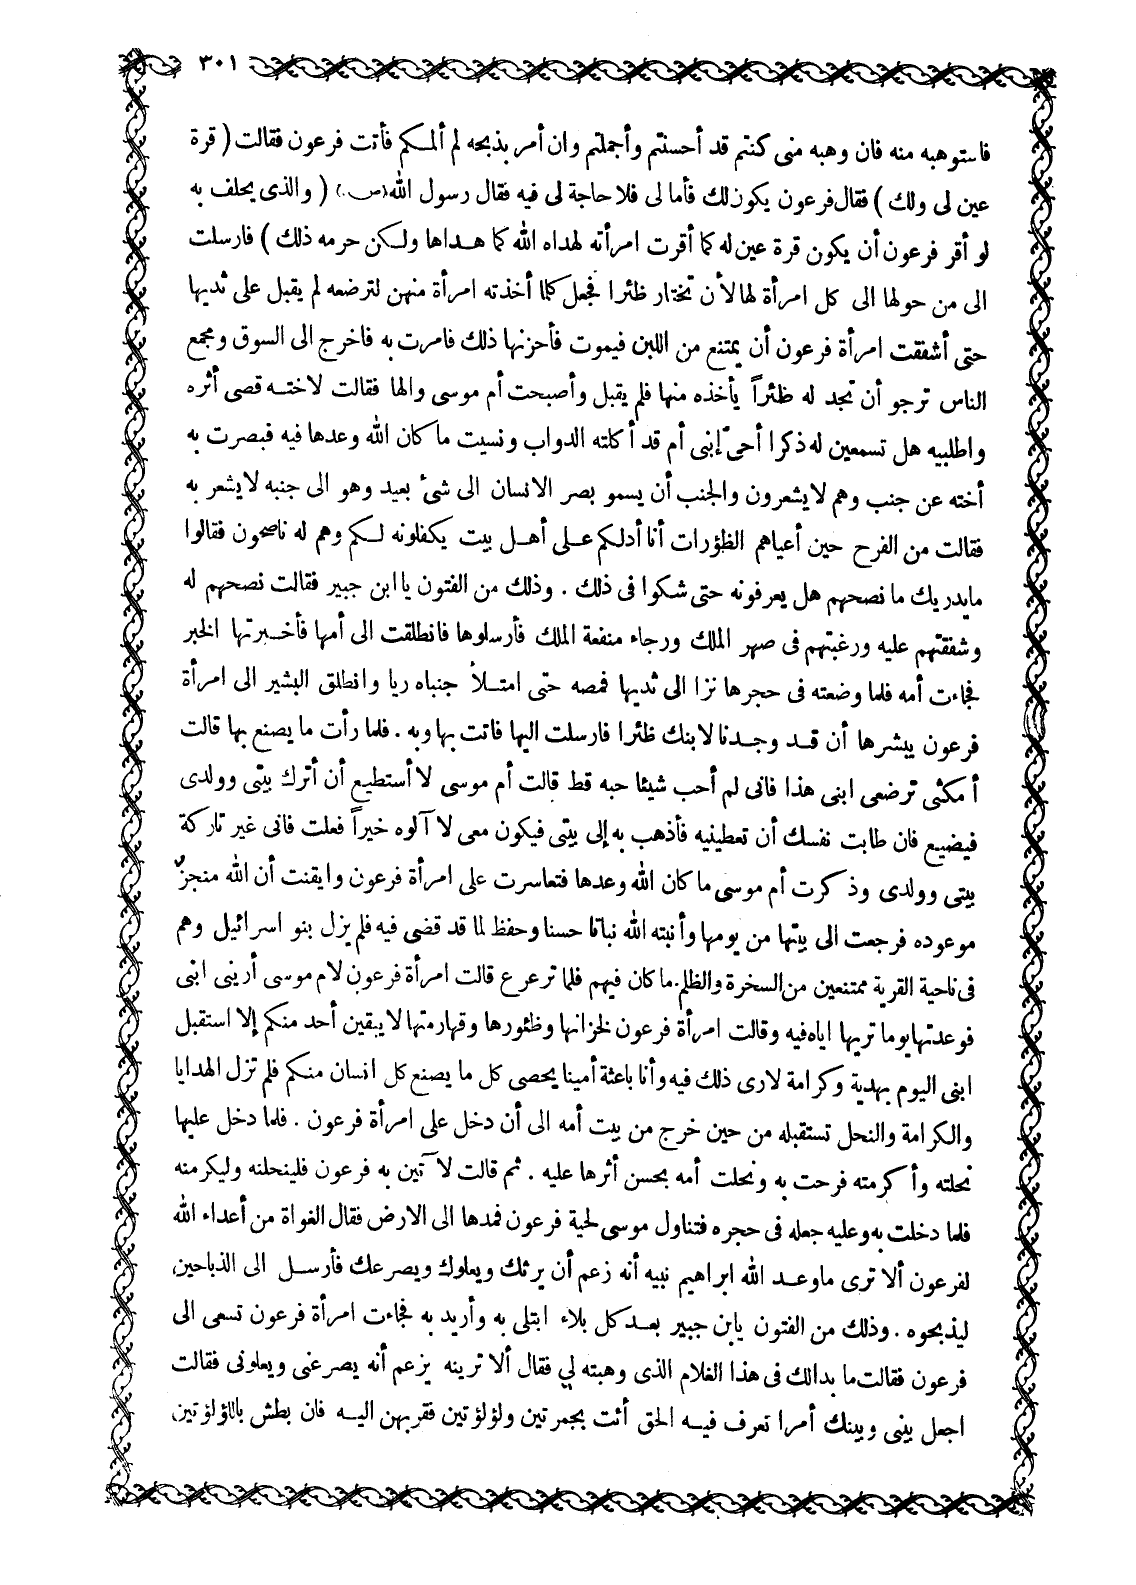 ٣٠١
فاستوهبه منه فان وهبه منى كنتم قد أحسنتم وأجملتم وان أمر بذبحه لم ألمكم فأتت فرعون فقالت ( قرة
عين لى ولك ) فقال فرعون يكون لك فأما لى فلا حاجة لى فيه فقال رسول الله (ص) ( والذى يحلف به
لو أقر فرعون أن يكون قرة عين له كما أقرت امرأته لهداه الله كما هداها ولكن حرمه ذلك ) فارسلت
الى من حولها الى كل امرأة لها لأن تختار ظئرا فجعل كلما أخذته امرأة منهن لترضعه لم يقبل على ثديها
حتى أشفقت امرأة فرعون أن يمتنع من اللبن فيموت فأحزنها ذلك فامرت به فاخرج الى السوق ومجمع
الناس ترجو أن تجد له ظئراً يأخذه منها فلم يقبل وأصبحت أم موسى والها فقالت لاخته قصى أثره
واطلبيه هل تسمعين له ذكرا أحى إبنى أم قد أكلته الدواب ونسيت ما كان الله وعدها فيه فبصرت به
أخته عن جنب وهم لايشعرون والجنب أن يسمو بصر الانسان الى شئ بعيد وهو الى جنبه لايشعر به
فقالت من الفرح حين أعياهم الظؤرات أنا أدلكم على أهل بيت يكفلونه لكم وهم له ناصحون فقالوا
مايدريك ما نصحهم هل يعرفونه حتى شكوا فى ذلك . وذلك من الفتون يا ابن جبير فقالت نصحهم له
وشفقتهم عليه ورغبتهم فى صهر الملك ورجاء منفعة الملك فأرسلوها فانطلقت الى أمها فأخبرتها الخبر
فجاءت أمه فلما وضعته فى حجرها نزا الى ثديها فمصه حتى امتلأ جنباه ريا وانطلق البشير الى امرأة
فرعون يبشرها أن قد وجدنا لابنك ظئرا فارسلت اليها فاتت بها وبه . فلما رأت ما يصنع بها قالت
أمكثى ترضعى ابنى هذا فانى لم أحب شيئا حبه قط قالت أم موسى لا أستطيع أن أترك بيتى وولدى
فيضيع فان طابت نفسك أن تعطينيه فأذهب به إلى بيتى فيكون معى لا آلوه خيراً فعلت فانى غير تاركة
بيتى وولدى وذكرت أم موسى ما كان الله وعدها فتعاسرت على امرأة فرعون وايقنت أن الله منجزٌ
موعوده فرجعت الى بيتها من يومها وأنبته الله نباتا حسنا وحفظ لما قد قضى فيه فلم يزل بنو اسرائيل وهم
فى ناحية القرية ممتنعين من السخرة والظلم. ما كان فيهم فلما ترعرع قالت امرأة فرعون لام موسى أرينى ابنى
فوعدتها يوما تريها اياه فيه وقالت امرأة فرعون لخزانها وظئورها وقهارمتها لايبقين أحد منكم إلا استقبل
ابنى اليوم بهدية وكرامة لارى ذلك فيه وأنا باعثة أمينا يحصى كل ما يصنع كل انسان منكم فلم تزل الهدايا
والكرامة والنحل تستقبله من حين خرج من بيت أمه الى أن دخل على امرأة فرعون . فلما دخل عليها
نحلته وأكرمته فرحت به ونحلت أمه بحسن أثرها عليه . ثم قالت لآتين به فرعون فلينحلنه وليكرمنه
فلما دخلت به وعليه جعله فى حجره فتناول موسى لحية فرعون فمدها الى الارض فقال الغواة من أعداء الله
لفرعون ألا ترى ماوعد الله ابراهيم نبيه أنه زعم أن يرثك ويعلوك ويصرعك فأرسل الى الذباحين
ليذبحوه . وذلك من الفتون يابن جبير بعد كل بلاء ابتلى به وأريد به فجاءت امرأة فرعون تسعى الى
فرعون فقالت ما بدالك فى هذا الغلام الذى وهبته لي فقال ألا ترينه يزعم أنه يصرعنى ويعلونى فقالت
اجعل بينى وبينك أمرا تعرف فيه الحق أئت بجمرتين ولؤلؤتين فقربهن اليه فان بطش باللؤلؤتين